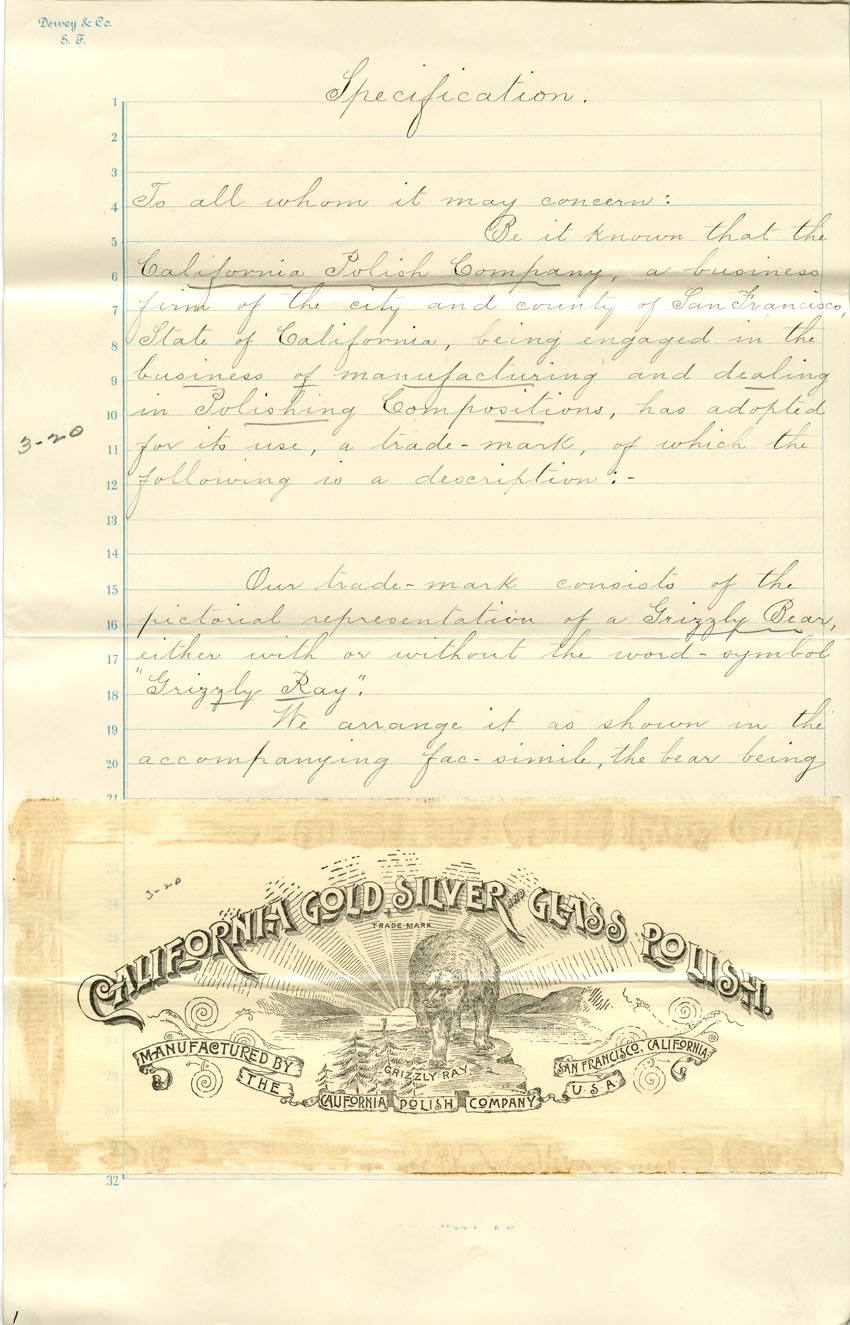 Dewey & Co.
S. F.
Specification.
1
2
3
4 To all whom it may concern:
5 Be it known that the
6 California Polish Company, a business
7 firm of the city and county of San Francisco,
8 State of California, being engaged in the
9 business of manufacturing and dealing
10 in Polishing Compositions, has adopted
3-20
11 for its use, a trade-mark, of which the
12 following is a description:-
13
14
15 Our trade-mark consists of the
16 pictorial representation of a Grizzly Bear,
17 either with or without the word-symbol
18 "Grizzly Ray".
19 We arrange it as shown in the
20 accompanying fac-simile, the bear being
21
3-20
CALIFORNIA GOLD SILVER AND GLASS POLISH.
TRADE MARK
GRIZZLY RAY
MANUFACTURED BY
THE
CALIFORNIA POLISH COMPANY
SAN FRANCISCO, CALIFORNIA
U.S.A.
28
29
30
32
1